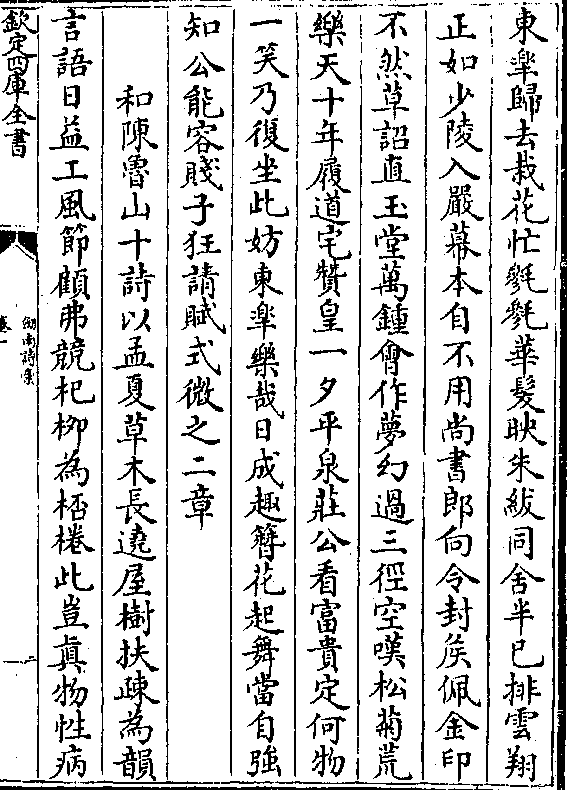 東臯歸去栽花忙毿毿華髮映朱紱同舍半已排雲翔
正如少陵入嚴幕本自不用尚書郎向令封矦佩金印
不然草詔直玉堂萬鍾㑹作夢幻過三徑空嘆松菊荒
樂天十年履道宅贊皇一夕平泉莊公看富貴定何物
一笑乃復坐此妨東臯樂哉日成趣簪花起舞當自強
知公能容賤子狂請賦式微之二章
和陳魯山十詩以孟夏草木長遶屋樹扶疎為韻
言語日益工風節頋弗競杞柳為桮棬此豈真物性病
欽定四庫全書
劍南詩藁
卷一
二